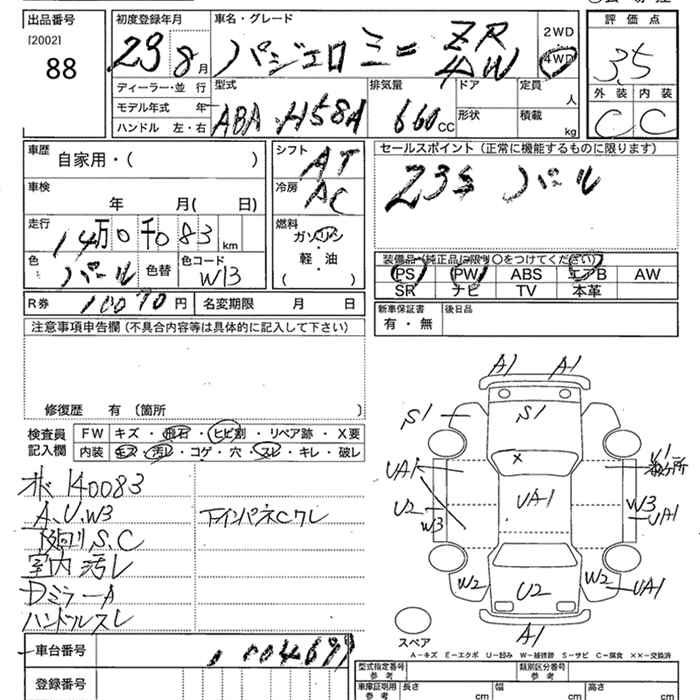 出品番号
[2002]
88
初度登録年月
23 8月
車名・グレード
パジェロミニ ZR
4W
2WD
4WD
評価点
3.5
外装 内装
C C
ディーラー・並 行
モデル年式 年
ハンドル 左・右
型式
ABA H58A
排気量
660 cc
ドア
形状
定員 人
積載 kg
車歴
自家用・( )
車検
年 月( 日)
走行
14万0千083 km
色
パール
色替
色コード
W13
R券
10070 円
名変期限 月 日
シフト
AT
冷房
AC
燃料
ガソリン
軽・油
( )
セールスポイント(正常に機能するものに限ります)
パール
装備品(純正品に限り〇をつけてください)
PS PW ABS エアB AW
SR ナビ TV 本革
新車保証書
有・無
後日品
注意事項申告欄(不具合内容等は具体的に記入して下さい)
修復歴 有 (箇所 )
検査員
記入欄
FW キズ・飛石・ヒビ割・リペア跡・X要
内装 キズ・汚れ・コゲ・穴・スレ・キレ・破レ
140083
A、U、W3
下廻り S、C
室内汚レ
DミラーA
ハンドルスレ
下インパネCワレ
A1 A1
S1 S1
X
UA1 UA1 U1
U2 W3 W3 UA1
W2 U2 W2 UA1
A1
スペア
A-キズ E-エクボ U-凹み W-補修跡 S-サビ C-腐食 XX-交換済
車台番号
登録番号
型式指定番号
参考
類別区分番号
参考
車庫証明用
参考
長さ cm
幅 cm
高さ cm